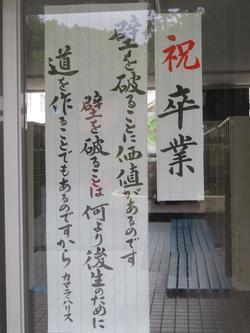 祝卒業
壁を破ることに価値があるのです
壁を破ることは何より後生のために
道を作ることでもあるのですから カマラ・ハリス